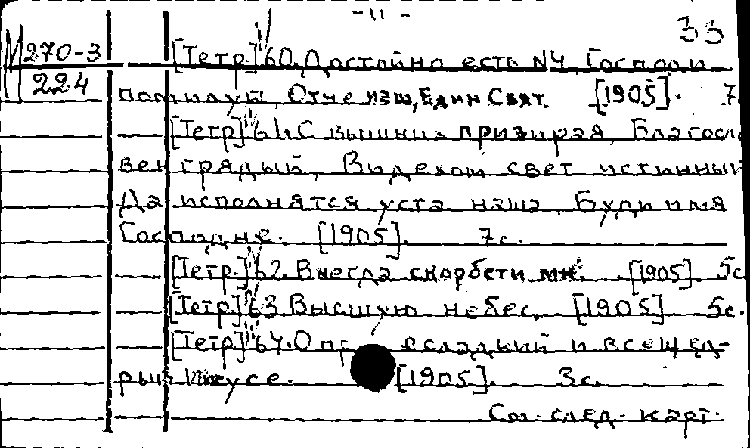 - 11 -
33
270-3
224
[Тетр.] 60. Достойно есть №4, Господи
помилуй, Отче наш, Един Свят. [1905]. 7
[Тетр.] 61. С вышних призирая, Благосло
вен грядый, Видехом свет истинный
Да исполнятся уста наша, Буди имя
Господне. [1905]. 7с.
[Тетр.] 62. Внегда скорбети ми. [1905]. 5с
[Тетр.] 63. Высшую небес. [1905] 5с.
[Тетр.] 64. О сладкий и всещед-
рый Иисусе. [1905]. 3с.
См. след. карт.